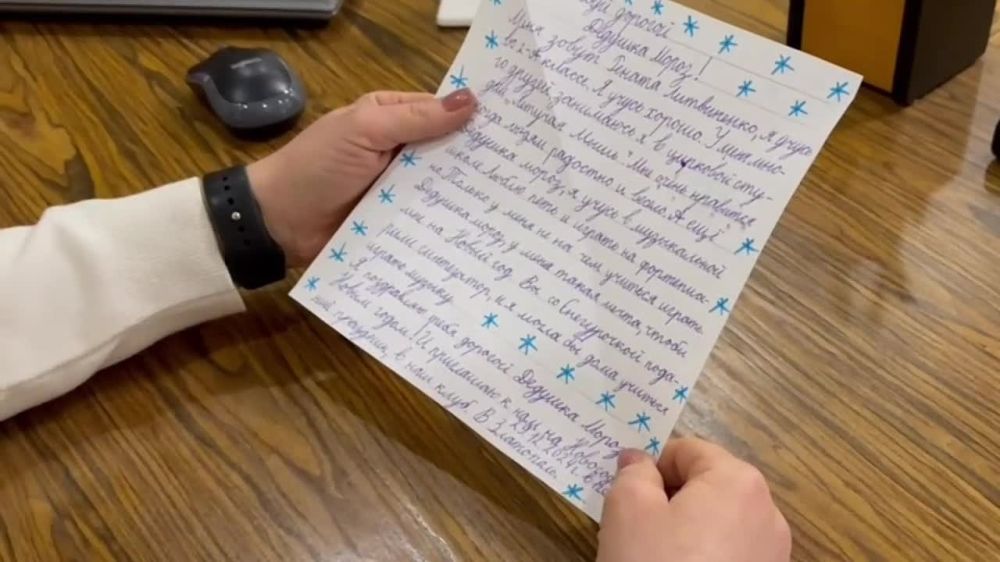 дорогой
Дедушка Мороз!
Меня зовут Рената Литвиненко, я учусь
во 2-А классе. Я учусь хорошо. У меня мно-
го друзей, занимаюсь я в цирковой сту-
дии "Летучая Мышь". Мне очень нравится
людям радостно и весело. А ещё
Дедушка мороз, я учусь в музыкальной
школе. Люблю петь и играть на фортепиа-
но. Только у меня не на чем учиться играть
Дедушка мороз, у меня такая мечта, чтобы
мне на Новый год Вы со Снегурочкой пода-
рили синтезатор, и я могла бы дома учиться
играть музыку.
Я поздравляю тебя дорогой Дедушка Мороз
Новым годом! И приглашаю к нам на Новогод-
ний праздник, в наш клуб. В 29.12.2024г. в
В Златополь.